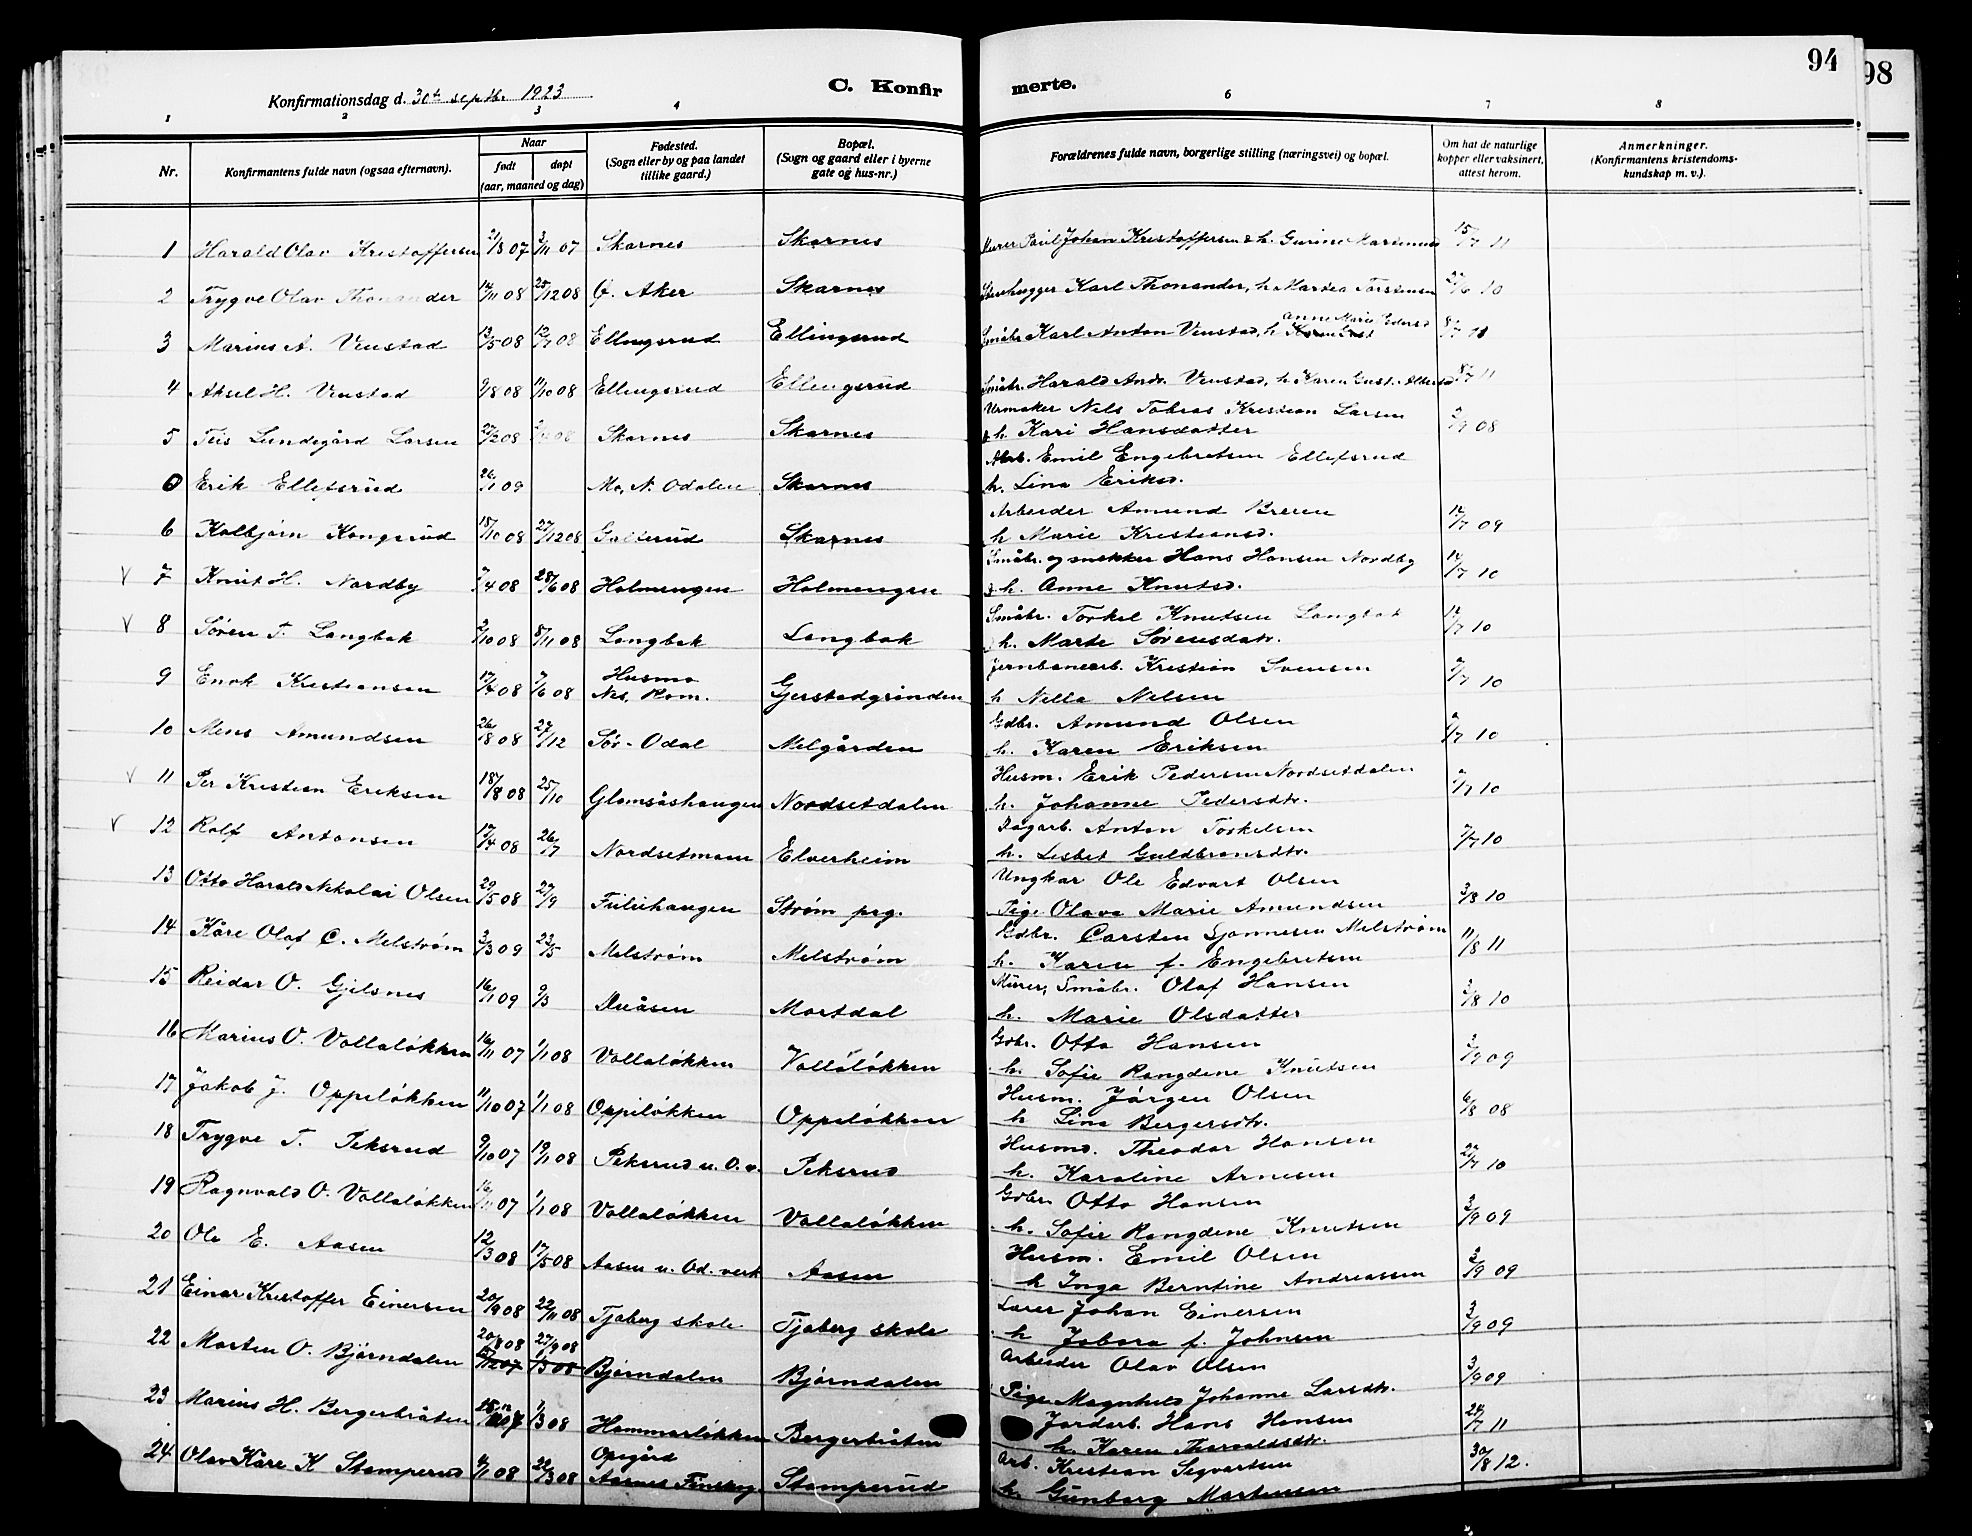 94
98
Konfirmationsdag d. 30te septbr. 1923
C. Konfir merte.
1 2 3 4 6 7 8
Nr. Konfirmantens fulde navn (ogsaa efternavn). Naar født døpt (aar, maaned og dag) Fødested. (Sogn eller by og paa landet tillike gaard.) Bopæl. (Sogn og gaard eller i byerne gate og hus-nr.) Forældrenes fulde navn, borgerlige stilling (næringsvei) og bopæl. Om hat de naturlige kopper eller vaksinert, attest herom. Anmerkninger. (Konfirmantens kristendomskundskap m. v.).
1 Harald Olav Kristoffersen 21/8 07 3/11 07 Skarnes Skarnes Murer Paul Johan Kristoffersen & h. Gurine 15/7 11
2 Trygve Olav Thonander 14/11 08 25/12 08 Ø. Aker Skarnes Stenhugger Karl Thonander, h Martea Torstensen 10
3 Marius A. Venstad 13/5 08 12/7 08 Ellingsrud Ellingsrud Småbr. Karl Anton Venstad, h Anne Marie
4 Aksel H. Venstad 9/8 08 11/10 08 Ellingsrud Ellingsrud Småbr. Harald Andr. Venstad, h Karen Gust. 11
5 Teis Lundegård Larsen 27/2 08 Skarnes Skarnes Urmaker Nels Tobias Kristian Larsen
& h. Kari Hansdatter 2/9 08
0 Erik Ellefsrud 26/1 09 Mo, N. Odalen Skarnes Arb. Emil Engebretsen Ellefsrud
h. Lina Eriksd.
6 Kolbjørn Kongsrud 18/10 08 27/12 08 Galterud Skarnes Arbeider Amund Breren
h Marie Kristiansd. 12/7 09
V 7 Knut H. Nordby 7/4 08 28/6 08 Holmengen Holmengen Småbr. og snekker Hans Hansen Nordby
& h. Anne Knutsd. 12/7 10
V 8 Søren T. Langbak 2/10 08 8/11 08 Langbak Langbak Småbr. Torkel Knutsen Langbak
h. Marte Sørensdatr. 12/7 10
9 Enok Kristiansen 17/4 08 7/6 08 Husmo Nes, Rom. Gjerstadgrinden Jernbanearb. Kristian Svensen
h Nella Nelsen 7/7 10
10 Mens Amundsen 26/8 08 27/12 Sør-Odal Melgården Gdbr. Amund Olsen
h. Karen Eriksen 10
V 11 Per Kristian Eriksen 18/8 08 25/10 Glomsåshaugen Nordsetdalen Husm. Erik Pedersen Nordsetdalen
h. Johanne Pedersdtr. 7/7 10
V 12 Rolf Antonsen 17/4 08 26/7 Nordsetmoen Elverheim Dagarb. Anton Torkelsen
h. Lisbet Guldbransdtr. 7/7 10
13 Otto Harald Nikolai Olsen 29/5 08 27/9 Fulichaugen Strøm prg. Ungkar Ole Edvart Olsen
Pige Olava Marie Amundsen 3/8 10
14 Kåre Olaf C. Melstrøm 3/3 09 23/5 Melstrøm Melstrøm Gdbr. Carsten Melstrøm
h. Karen f. Engebretsen 11/8 11
15 Reidar O. Gjelsnes 16/1 09 9/3 Duåsen Mortdal Murer, Småbr. Olaf Hansen
h. Marie Olsdatter 3/8 10
16 Marius O. Vollaløkken 16/11 07 1/1 08 Vollaløkken Vollaløkken Gdbr. Otto Hansen
h. Sofie Rangdene Knutsen 2/9 09
17 Jakob J. Oppiløkken 11/10 07 1/1 08 Oppiløkken Oppiløkken Husm. Jørgen Olsen
h Lina Bergersdtr. 6/8 08
18 Trygve T. Peksrud 9/10 07 19/1 08 Peksrud u. O.v. Peksrud Husmd. Theodor Hansen
h. Karoline Arnesen 27/7 10
19 Ragnvald O. Vollaløkken 16/11 07 1/1 08 Vollaløkken Vollaløkken Gdbr. Otto Hansen
h. Sofie Rangdene Knutsen 2/9 09
20 Ole E. Aasen 12/3 08 17/5 08 Aasen u. Od. verk Aasen Husm. Emil Olsen
h Inga Berntine Andreassen 2/9 09
21 Einar Kristoffer Einersen 20/9 08 22/11 08 Tjaberg skole Tjaberg skole Lærer Johan Einersen
h Jobara f. Johnsen 3/9 09
22 Morten O. Bjørndalen 20/8 08 27/9 08 Bjørndalen Bjørndalen Arbeider Olav Olsen
Pige Magnhild Johanne Larsdtr. 3/9 09
23 Marius H. Bergerbråten 1/3 08 Hammerløkken Bergerbråten Jordarb. Hans Hansen
h. Karen Thorvaldsdtr. 24/7 11
24 Olav Kåre K Stomperud 4/1 08 22/3 08 Opegård Aasnes Finskog Stomperud Arb. Kristian Segvartsen
h. Gunborg Martensen 30/8 12.